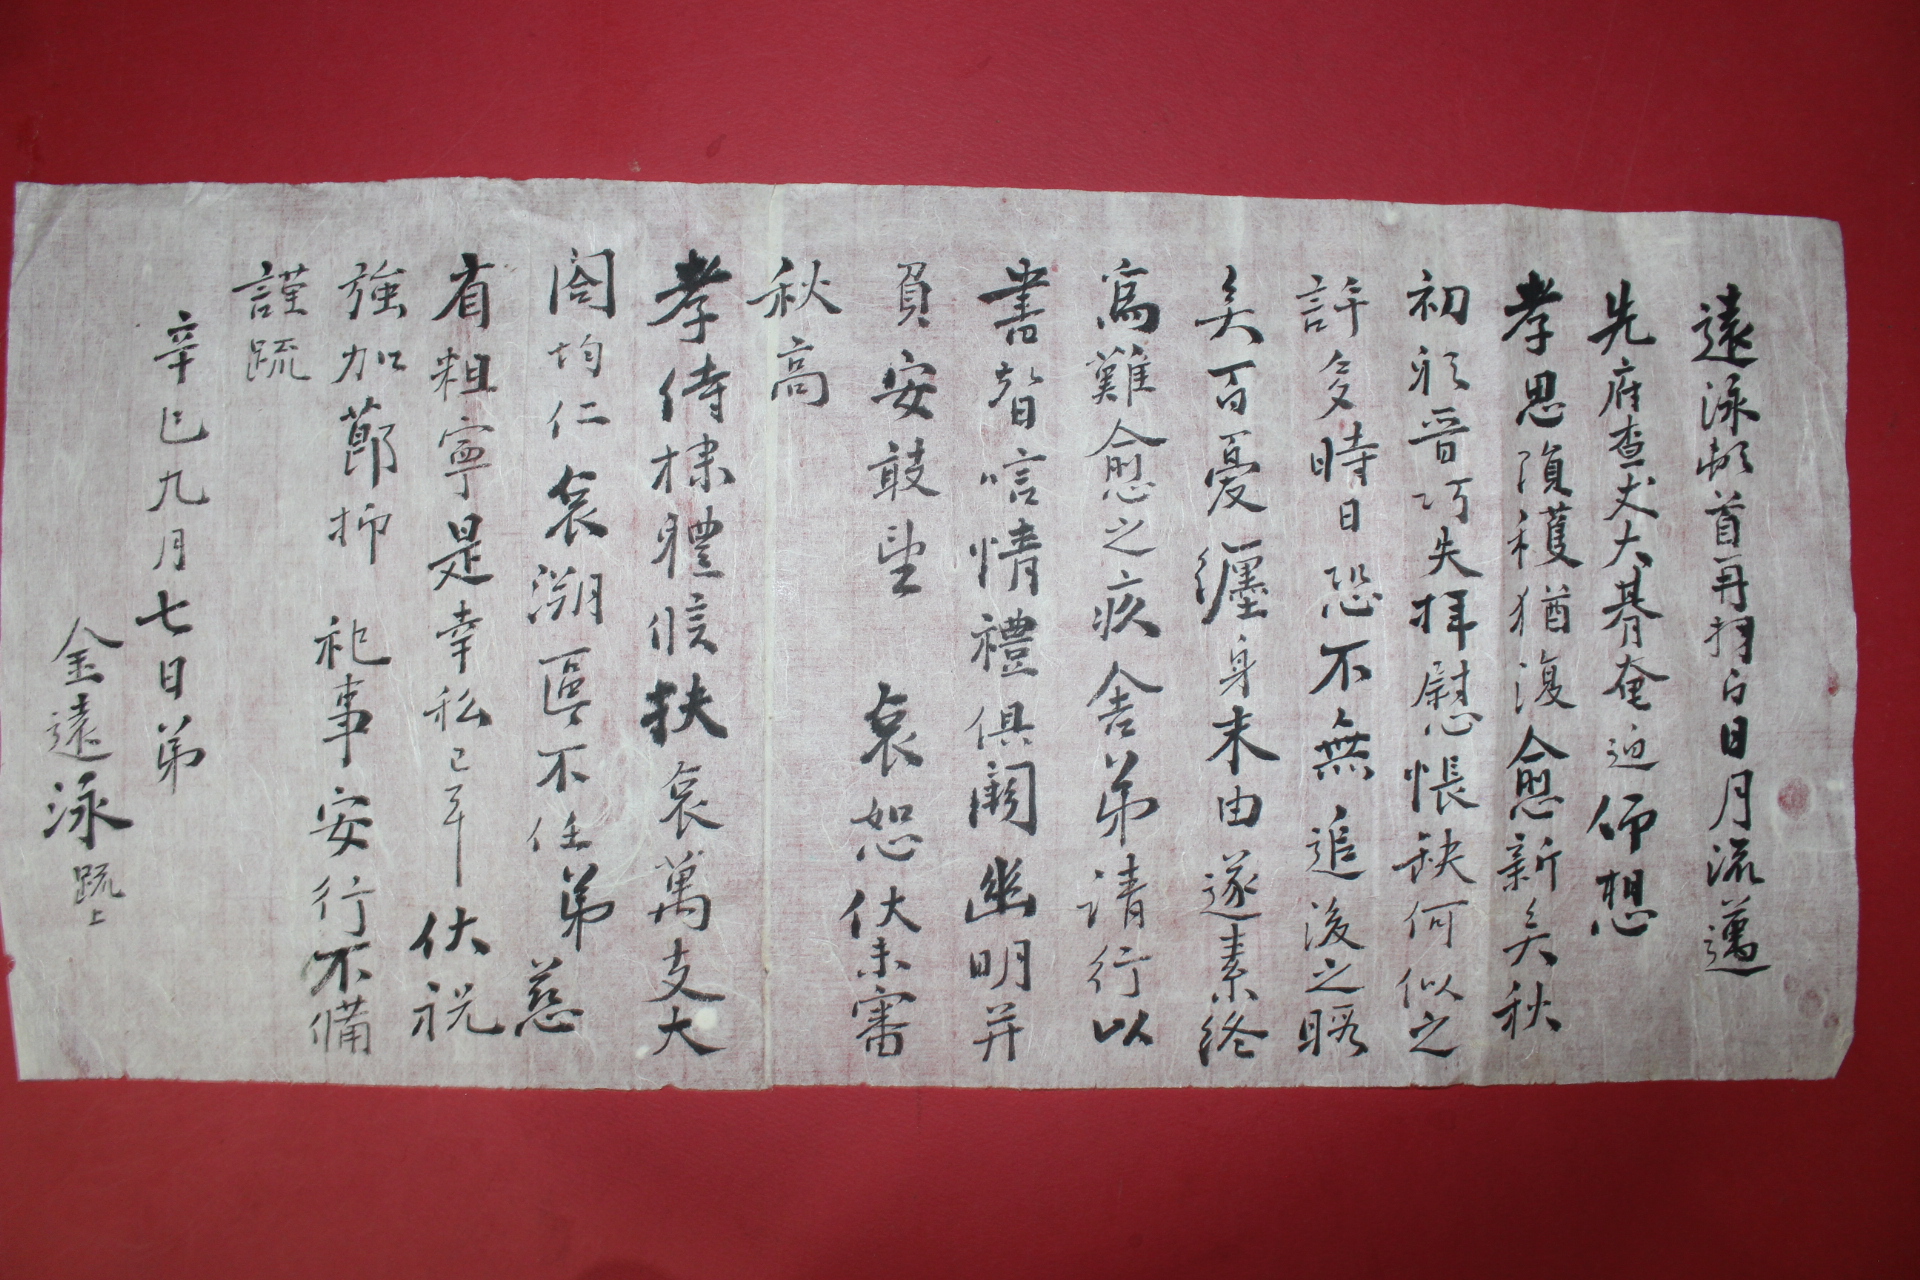 遠泳頓首再拜白日月流邁
先府查丈大朞奄迫仰想
孝思須穫猶復愈新矣秋
初於晋巧失拜慰悵缺何似之
許多時日恐不無追後之暇
矣百憂纏身末由遂素終
爲難愈之疚舍弟請行以
書替唁情禮俱闕幽明幷
負安敢望 哀恕伏未審
秋高
孝侍棣體候扶哀萬支大
閤均仁哀溯區區不任弟慈
省粗寧是幸私已耳伏祝
強加節抑 祀事安行不備
謹疏
辛巳九月七日弟
金遠泳疏上